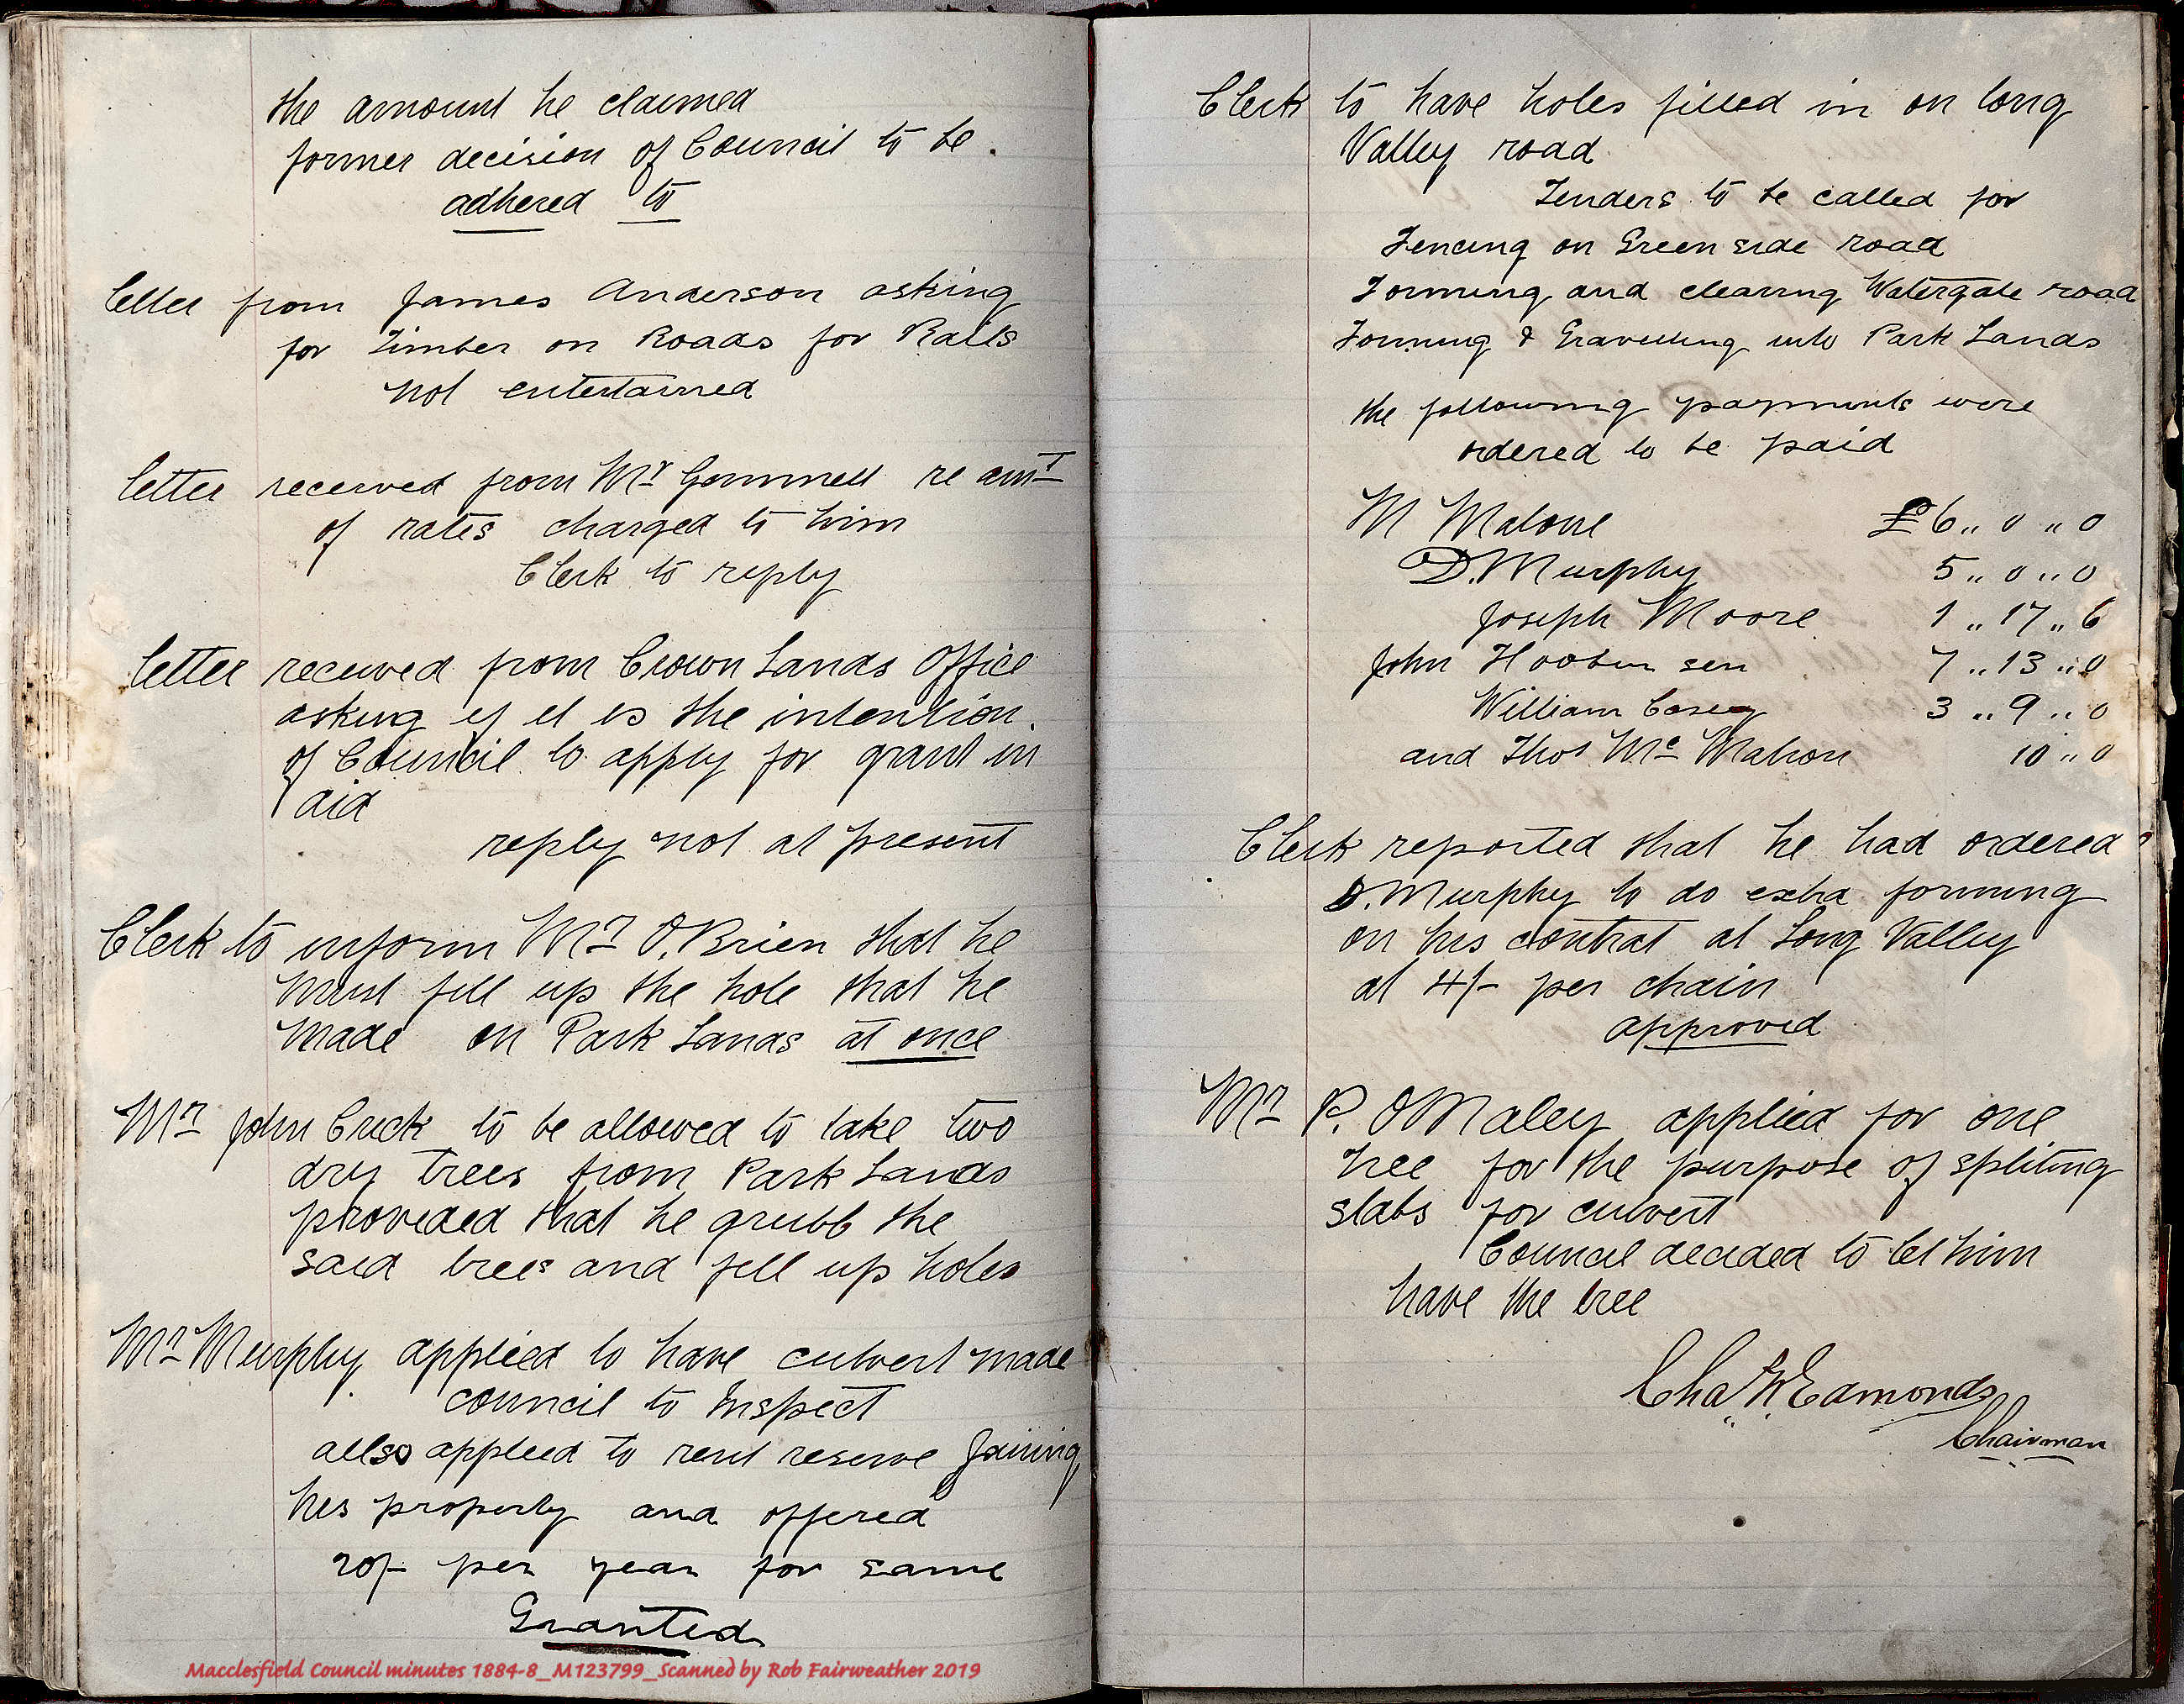 the amount he claimed
former decision of Council to be.
adhered to
letter from James Anderson asking
for timber on Roads for Rails
not entertained
letter received from Mr Gemmell re amt
of rates charged to him
Clerk to reply
letter received from Crown Lands Office
asking if it is the intention.
of Council to apply for grant in
aid
reply not at present
Clerk to inform Mr O,Brien that he
must fill up the hole that he
made on Park Lands at once
Mr John Crick to be allowed to take two
dry trees from Park Lands
provided that he grubb the
said trees and fill up holes
Mr Murphy applied to have culvert made
council to Inspect
allso applied to rent reserve Joining
his property and offered
20/- per year for same
Granted
Macclesfield Council minutes 1884-8_M123799_Scanned by Rob Fairweather 2019
Clerk to have holes filled in on long
Valley road
Tenders to be called for
Fencing on Green side road
Forming and clearing Watergate road
Forming & Gravelling into Park Lands
the following payments were
ordered to be paid
M Malone £6,, 0 ,, 0
D. Murphy 5 ,, 0 ,, 0
Joseph Moore 1 ,, 17 ,, 6
John sen 7 ,, 13 ,, 0
William Casey 3 ,, 9 ,, 0
and Thos Mc Mahon 10 ,, 0
Clerk reported that he had ordered
D. Murphy to do extra forming
on his contrat at Long Valley
at 4/- per chain
approved
Mr P. OMaley applied for one
tree for the purpose of spliting
slabs for culvert
Council decided to let him
have the tree
Cha W. Edmonds
Chairman